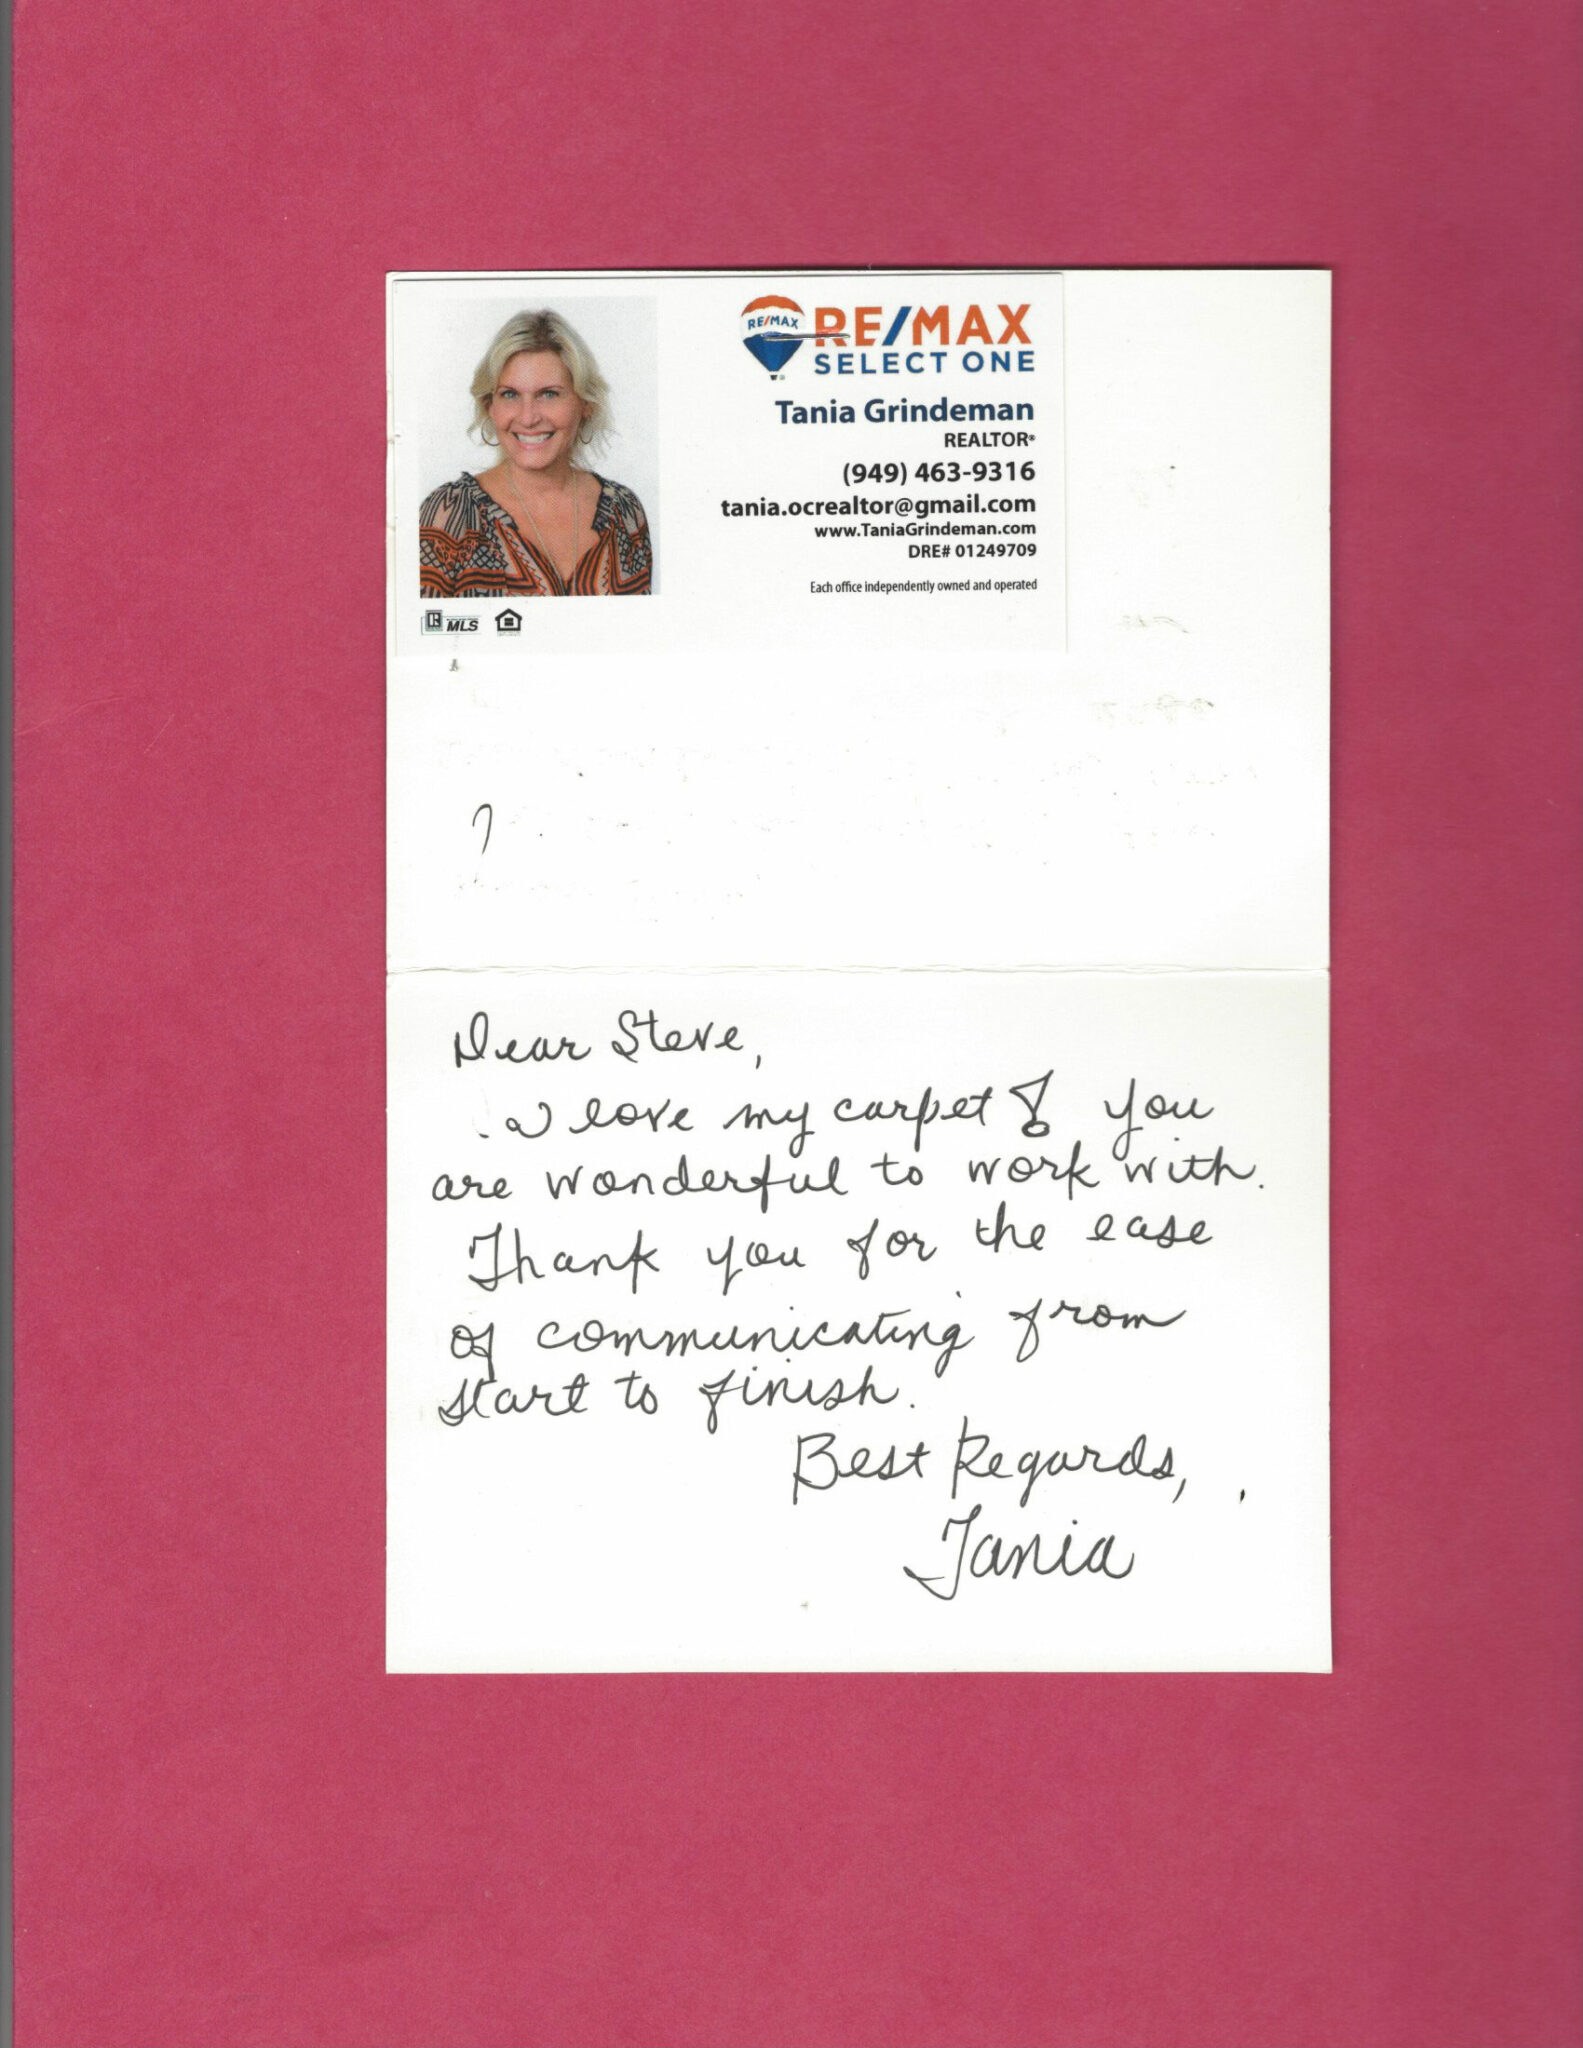 RE/MAX
RE/MAX
SELECT ONE
Tania Grindeman
REALTOR®
(949) 463-9316
tania.ocrealtor@gmail.com
www.TaniaGrindeman.com
DRE# 01249709
Each office independently owned and operated
R MLS
Dear Steve,
I love my carpet! You
are wonderful to work with.
Thank you for the ease
of communicating from
start to finish.
Best Regards,
Tania